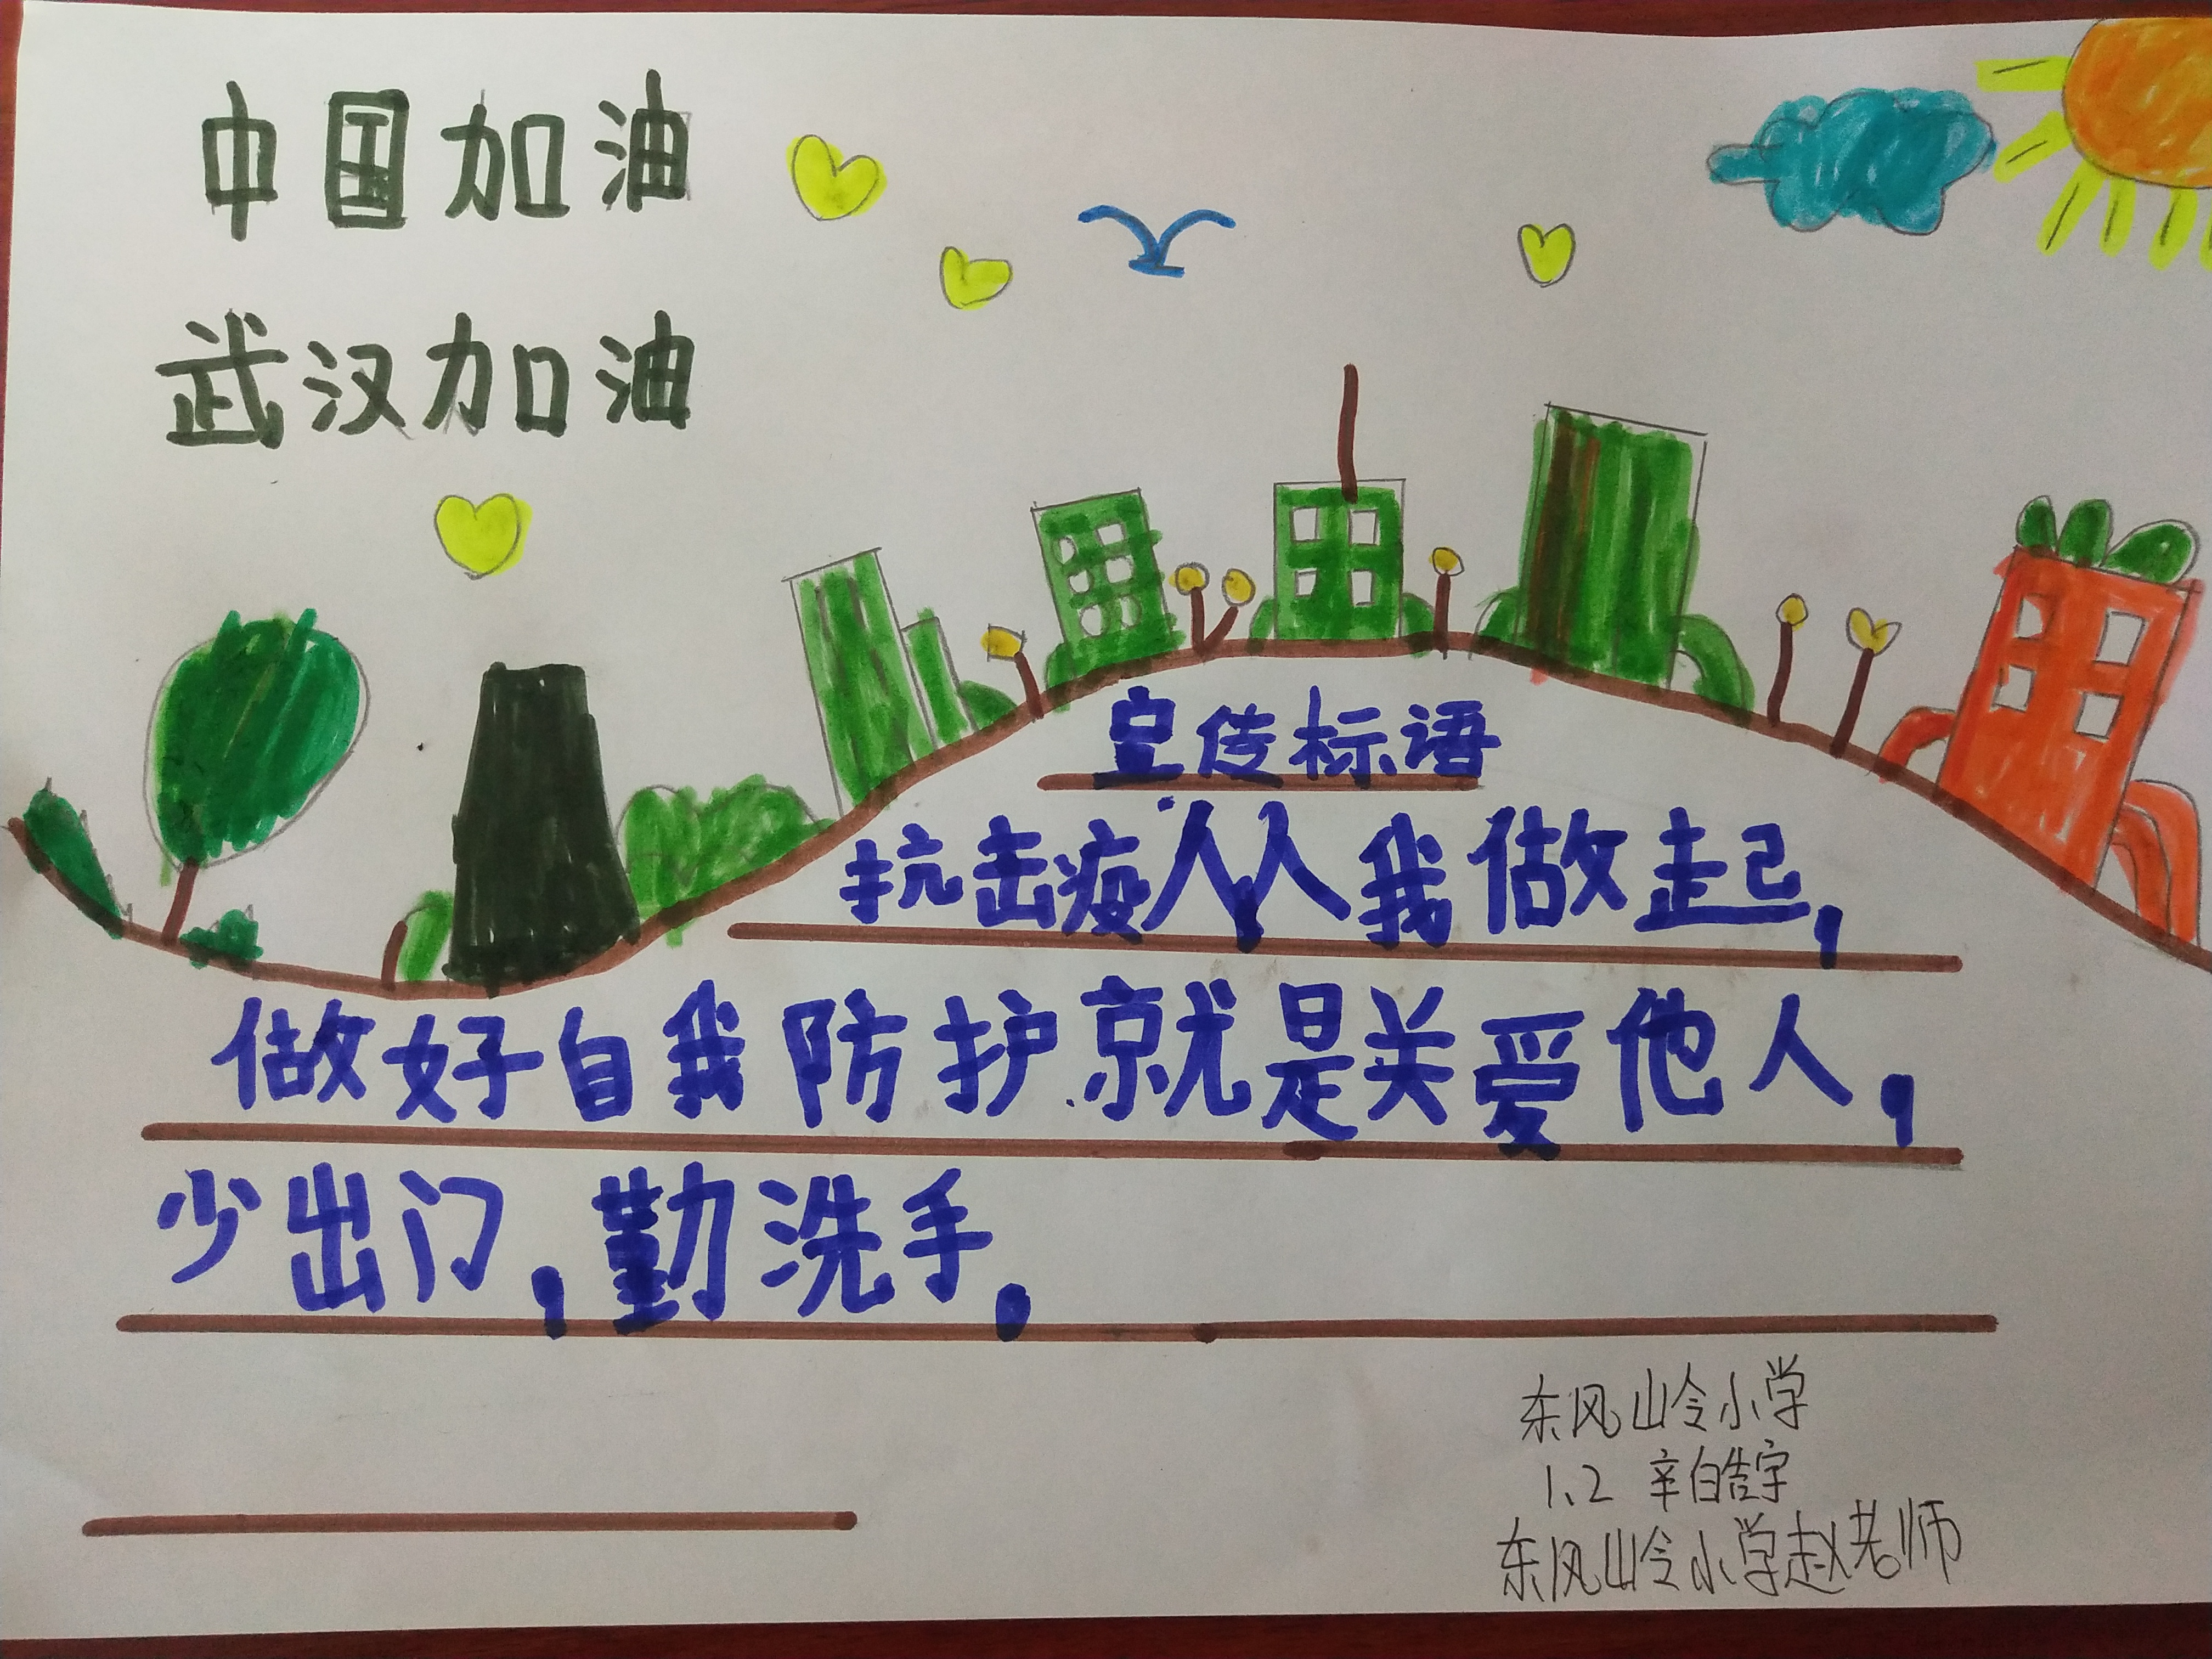 中国加油
武汉加油
宣传标语
抗击疫人,人我做起,
做好自我防护就是关爱他人,
少出门,勤洗手,
东风岭小学
1、2 辛皓宇
东风岭小学赵老师